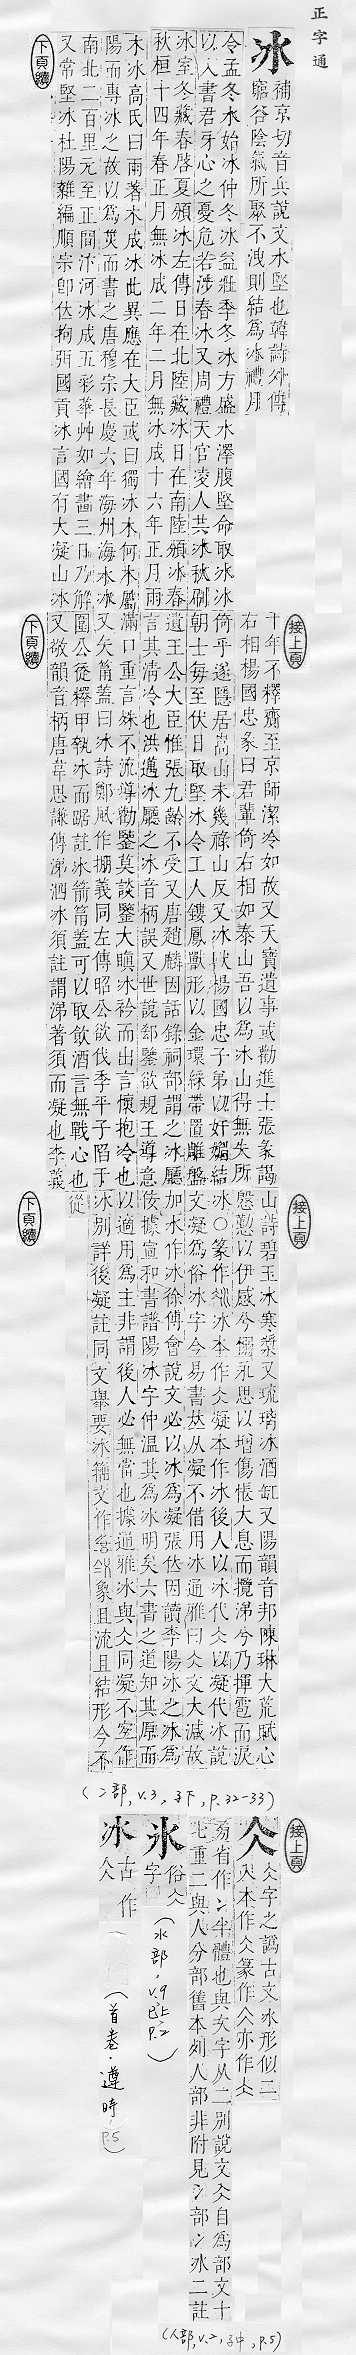 正字通
冰
補京切音兵說文水堅也韓詩外傳
窮谷陰氣所聚不洩則結爲冰禮月
令孟冬水始冰仲冬冰益壯季冬冰方盛水澤腹堅命取冰冰
以入書君牙心之憂危若涉春冰又周禮天官凌人共冰秋刷
冰室冬藏春啓夏頒冰左傳日在北陸藏冰日在南陸頒冰春
秋桓十四年春正月無冰成二年二月無冰成十六年正月雨
木冰高氏曰雨著木成冰此異應在大臣或曰獨冰木何木屬
陽而專冰之故以爲災而書之唐穆宗長慶六年海州海水冰
南北二百里元至正間汴河冰成五彩華艸如繪畫三日乃解
又常堅冰杜陽雜編順宗卽位拘弭國貢冰言國有大凝山冰
下頁續
接上頁
千年不釋齎至京師潔冷如故又天寶遺事或勸進士張彖謁
右相楊國忠彖曰君輩倚右相如泰山吾以爲冰山得無失所
倚乎遂隱居嵩山未幾祿山反又冰獸楊國忠子弟以奸媚結
朝士每至伏日取堅冰令工人鏤鳳獸形以金環綵帶置雕盤
遺王公大臣惟張九齡不受又唐趙麟因話錄祠部謂之冰廳
言其清冷也洪邁冰廳之冰音柄誤又世說郄鑒欲規王導意
滿口重言殊不流導勸鑒莫談鑒大瞋冰衿而出言懷抱冷也
又矢筩蓋曰冰詩鄭風作掤義同左傳昭公欲伐季平子陷于
圍公徒釋甲執冰而踞註冰箭筩蓋可以取飲酒言無戰心也
又敬韻音柄唐韋思謙傳涕泗冰須註謂涕著須而凝也李義
下頁續
接上頁
山詩碧玉冰寒漿又琉璃冰酒缸又陽韻音邦陳琳大荒賦心
慇懃以伊感兮慍永思以增傷悵大息而攬涕兮乃揮雹而淚
冰〇篆作冰冰本作仌凝本作冰後人以冰代仌以凝代冰說
文凝爲俗冰字今易書𠀤从凝不借用冰通雅曰仌文大減故
加水作冰徐傅會說文必以冰爲凝張佖因讀李陽冰之冰爲
依據宣和書譜陽冰字仲溫其爲冰明矣六書之道知其原而
以適用爲主非謂後人必無當也據通雅冰與仌同凝不室作
冰別詳後凝註同文舉要冰籀文作象且流且結形今不
從
下頁續
(冫部,v.3,子下,p.32-33)
接上頁
仌
仌字之譌古文冰形似二
入本作仌篆作仌亦作仌
易省作冫半體也與文字从二別說文仌自爲部文十
七重二與人分部舊本列人部非附見冫部冫冰二註
(人部,v.2,子中,p.5)
氷
俗仌
字
(水部,v.9,巳上,p.2)
冰
古作
仌
(首卷,遵時,p.5)